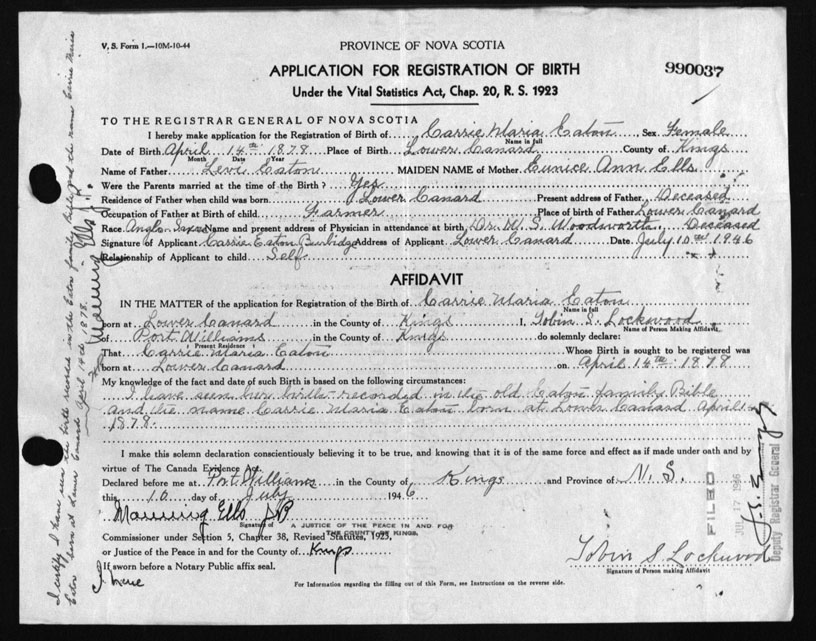 V. S. Form 1.—10M-10-44
PROVINCE OF NOVA SCOTIA
APPLICATION FOR REGISTRATION OF BIRTH
990037
Under the Vital Statistics Act, Chap. 20, R. S. 1923
TO THE REGISTRAR GENERAL OF NOVA SCOTIA
I hereby make application for the Registration of Birth of Carrie Maria Eaton Sex Female
Name in full
Date of Birth April 14th 1878 Place of Birth Lower Canard County of Kings
Month Date Year
Name of Father Levi Eaton MAIDEN NAME of Mother Eunice Ann Ells
Were the Parents married at the time of the Birth? Yes
Residence of Father when child was born Lower Canard Present address of Father Deceased
Occupation of Father at Birth of child Farmer Place of birth of Father Lower Canard
Race Anglo Saxon Name and present address of Physician in attendance at birth Dr. W. S. Woodworth Deceased
Signature of Applicant Carrie Eaton Burbidge Address of Applicant Lower Canard Date July 10th 1946
Relationship of Applicant to child Self
AFFIDAVIT
IN THE MATTER of the application for Registration of the Birth of Carrie Maria Eaton
Name in full
born at Lower Canard in the County of Kings I, Tobin S. Lockwood
Name of Person Making Affidavit
of Port Williams in the County of Kings do solemnly declare:
Present Residence
That Carrie Maria Eaton Whose Birth is sought to be registered was
born at Lower Canard on April 14th 1878
My knowledge of the fact and date of such Birth is based on the following circumstances:
I have seen her birth recorded in the old Eaton family Bible
and the name Carrie Maria Eaton born at Lower Canard April
1878.
I make this solemn declaration conscientiously believing it to be true, and knowing that it is of the same force and effect as if made under oath and by
virtue of The Canada Evidence Act.
Declared before me at Port Williams in the County of Kings and Province of N. S.
this 10 day of July 1946
Manning Ells J.P.
Signature of
A JUSTICE OF THE PEACE IN AND FOR
THE COUNTY OF KINGS.
Commissioner under Section 5, Chapter 38, Revised Statutes, 1923,
or Justice of the Peace in and for the County of Kings
Tobin S. Lockwood
Signature of Person making Affidavit
If sworn before a Notary Public affix seal.
For Information regarding the filling out of this Form, see Instructions on the reverse side.
I certify I have seen the birth recorded in the Eaton family Bible and the name Carrie Maria
Eaton born at Lower Canard April 14th, 1878.
Manning Ells J.P.
FILED
JUL 17 1946
Deputy Registrar General